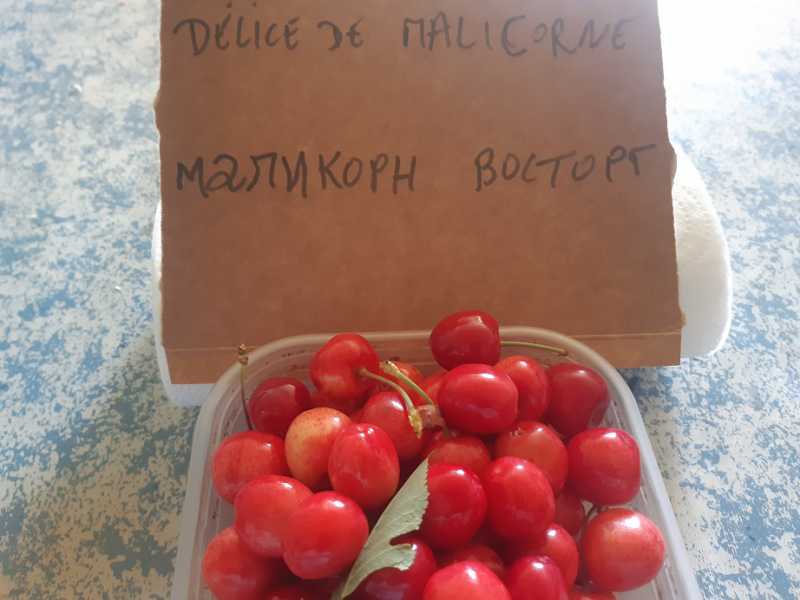 DÉLICE DE MALICORNE
МАЛИКОРН ВОСТОРГ